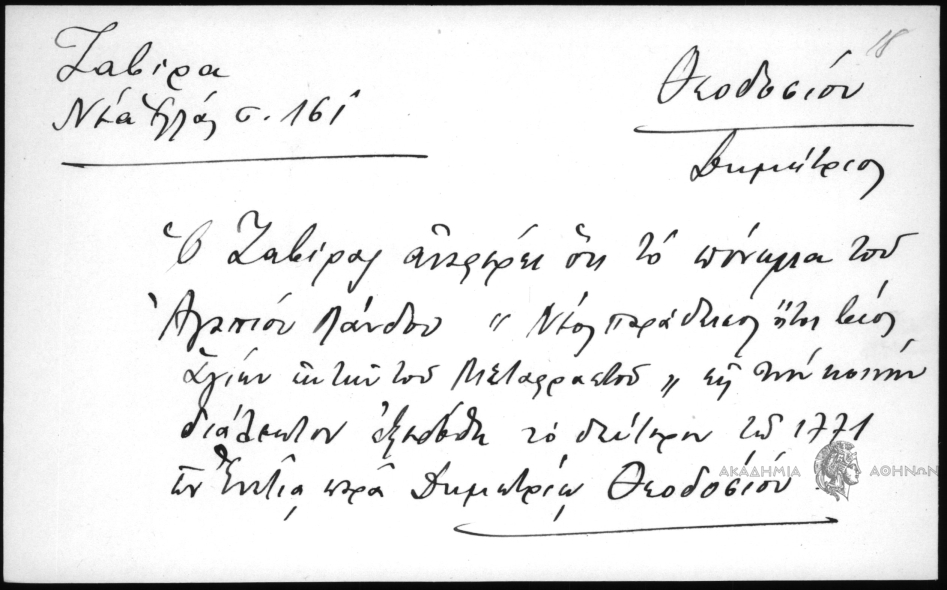 Ζαβίρα
Νέα Ἑλλάς σ. 161
18
Θεοδοσίου
Δημήτριος
Ὁ Ζαβίρας ἀναφέρει ὅτι τὸ πόνημα τοῦ
Ἀγαπίου Λάνδου „ Νέος παράδεισος ἤτοι βίος
ἁγίων ἐκ τῶν τοῦ Μεταφραστοῦ „ εἰς τὴν κοινὴν
διάλεκτον ἐξεδόθη τὸ δεύτερον τῷ 1771
ἐν Ἐνετίᾳ παρὰ Δημητρίῳ Θεοδοσίου
ΑΚΑΔΗΜΙΑ ΑΘΗΝΩΝ